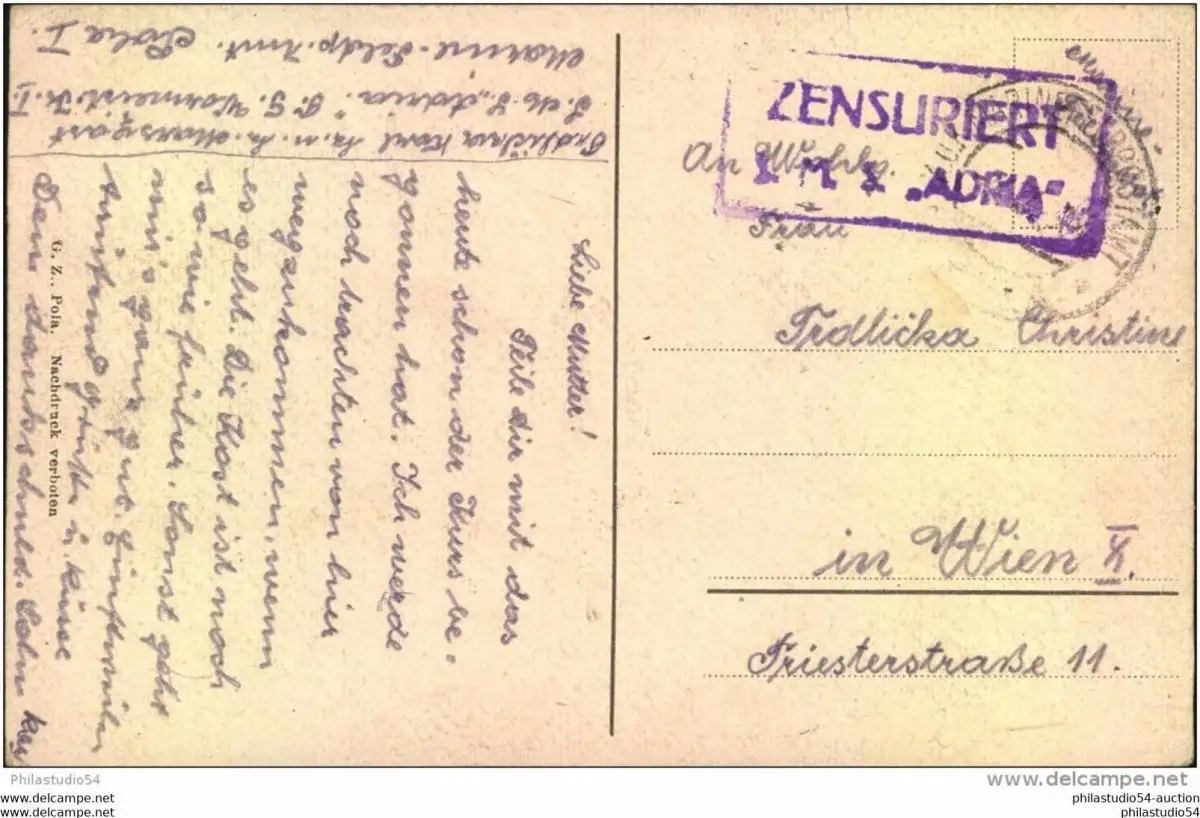 Trdlička Karl
S. M. S. "Adria"
Marine-Feldp. Amt. Pola I.
Liebe Mutter!
Teile dir mit das
heute schon der Kurs be-
gonnen hat. Ich werde
noch trachten von hier
wegzukommen, wenn
es geht. Die Kost ist noch
so wie früher. Sonst geht
mir ganz gut. Einstweilen
grüßt u. küsst
Dein dankschuld. Sohn Karl
G. Z., Pola. Nachdruck verboten
ZENSURIERT
S M S „ADRIA“
An Wohlg.
Frau
Trdlička Christine
in Wien X.
Triesterstraße 11.
Philastudio54
delcampe.net
www.ebay.com
www.ebay.com
philastudio54-auction
philastudio54